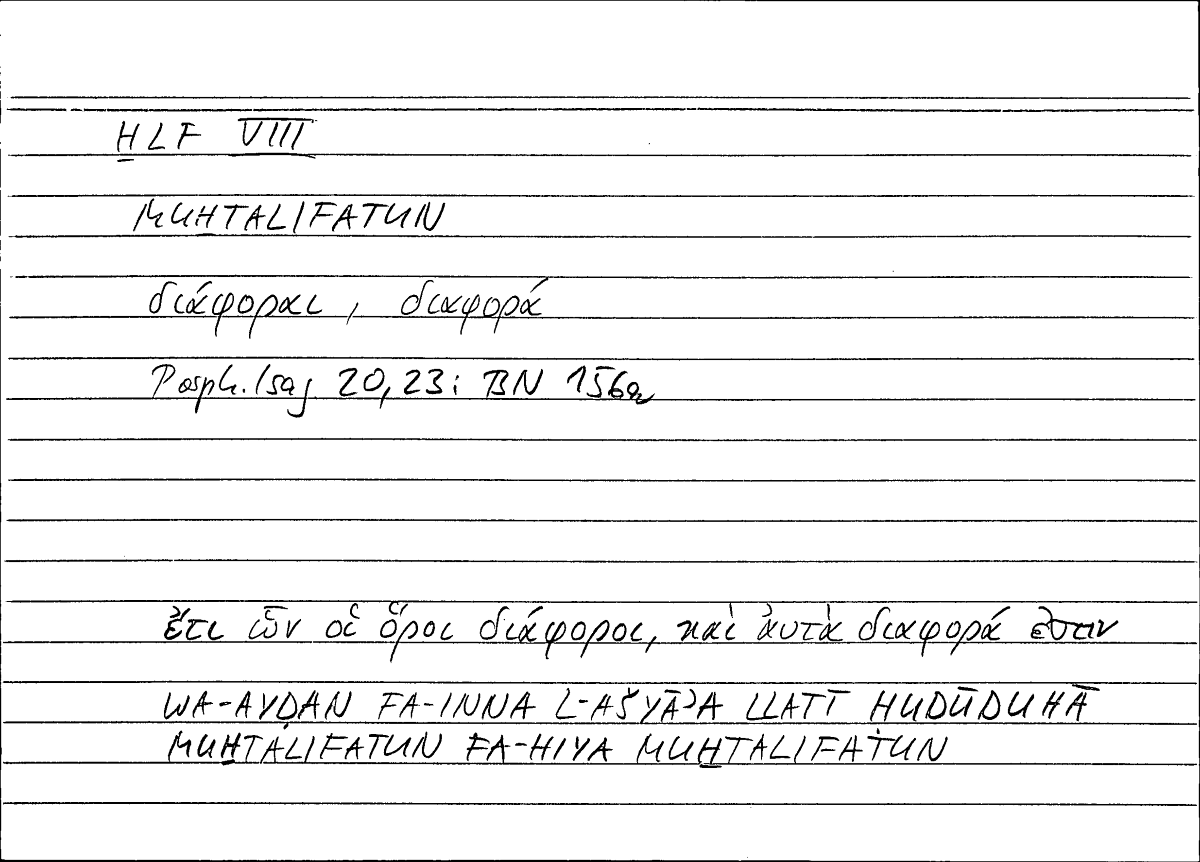 ḪLF VIII
MUḪTALIFATUN
διάφοραι, διαφορά
Porph. Isag. 20,23: BN 156a
ἔτι ὧν οἱ ὅροι διάφοροι, καὶ αὐτὰ διαφορά ἐστιν
WA-AYḌAN FA-INNA L-AŠYĀʾA LLATĪ ḤUDŪDUHĀ
MUḪTALIFATUN FA-HIYA MUḪTALIFATUN